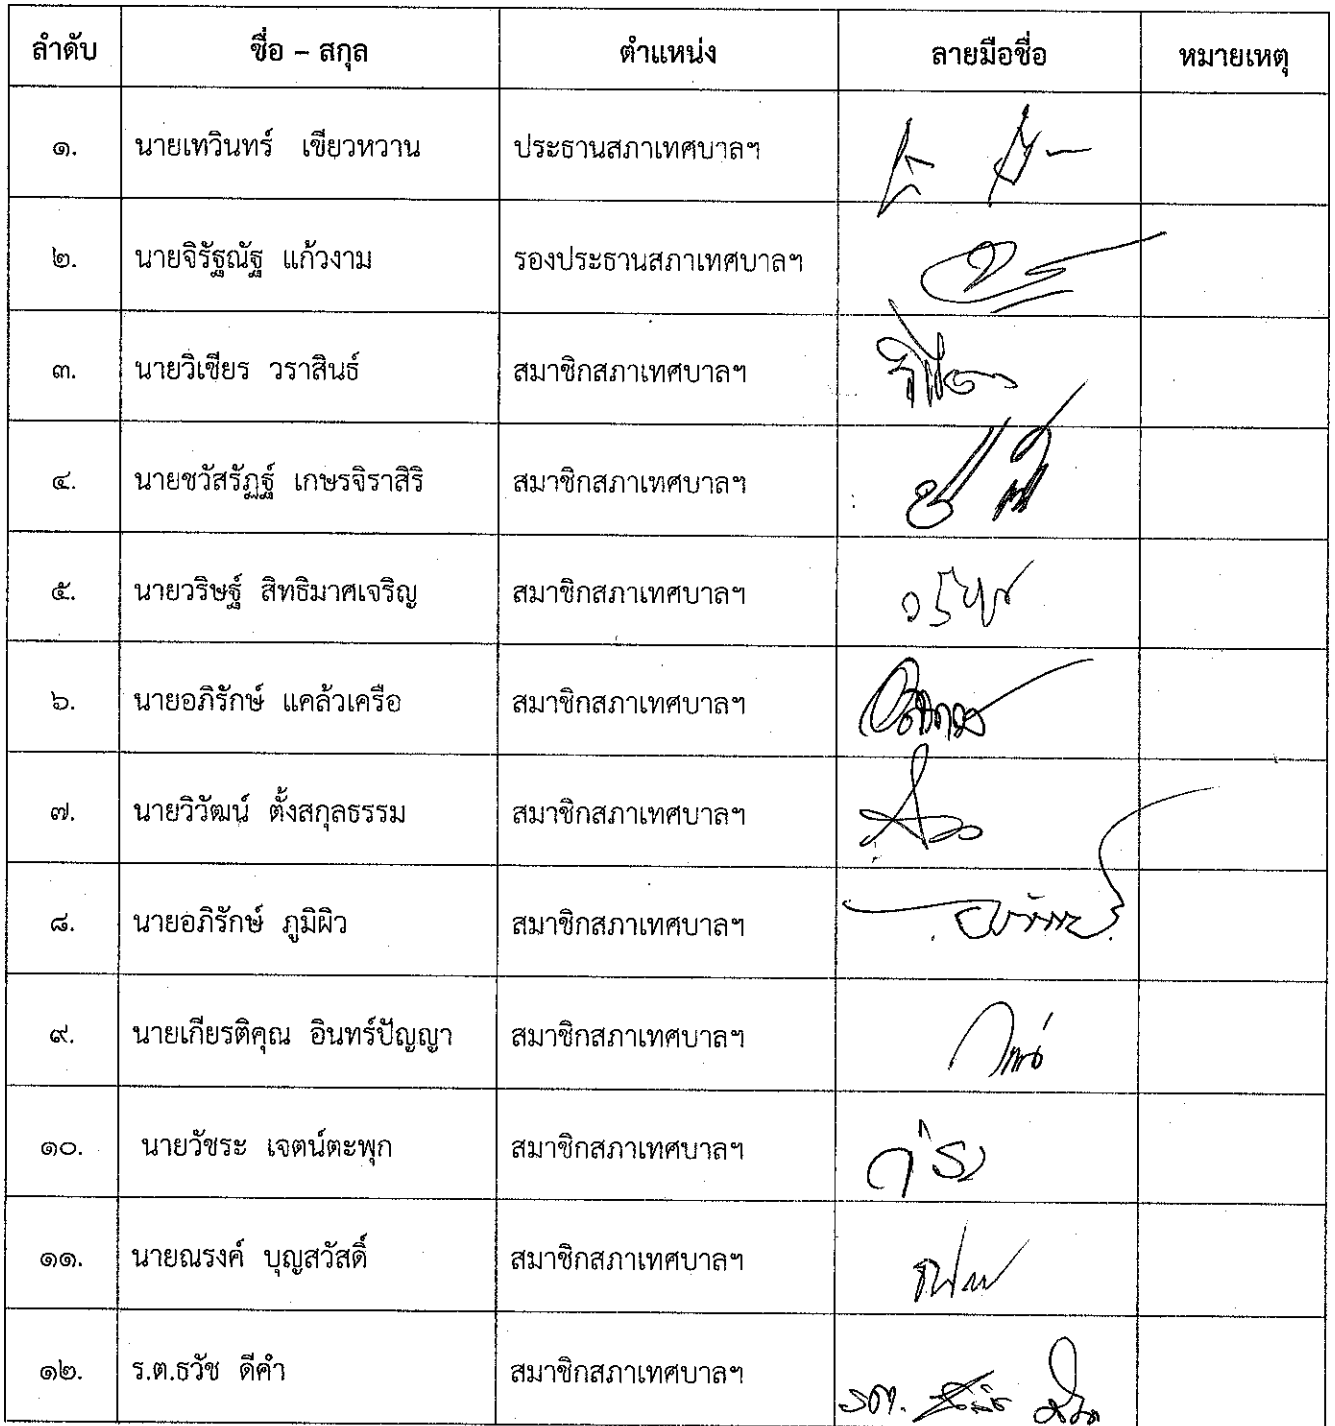 ลำดับ ชื่อ – สกุล ตำแหน่ง ลายมือชื่อ หมายเหตุ
๑. นายเทวินทร์ เขียวหวาน ประธานสภาเทศบาลฯ
๒. นายจิรัฐณัฐ แก้วงาม รองประธานสภาเทศบาลฯ
๓. นายวิเชียร วราสินธ์ สมาชิกสภาเทศบาลฯ
๔. นายชวัสรัฏฐ์ เกษรจิราสิริ สมาชิกสภาเทศบาลฯ
๕. นายวริษฐ์ สิทธิมาศเจริญ สมาชิกสภาเทศบาลฯ
๖. นายอภิรักษ์ แคล้วเครือ สมาชิกสภาเทศบาลฯ
๗. นายวิวัฒน์ ตั้งสกุลธรรม สมาชิกสภาเทศบาลฯ
๘. นายอภิรักษ์ ภูมิผิว สมาชิกสภาเทศบาลฯ
๙. นายเกียรติคุณ อินทร์ปัญญา สมาชิกสภาเทศบาลฯ
๑๐. นายวัชระ เจตน์ตะพุก สมาชิกสภาเทศบาลฯ
๑๑. นายณรงค์ บุญสวัสดิ์ สมาชิกสภาเทศบาลฯ
๑๒. ร.ต.ธวัช ดีคำ สมาชิกสภาเทศบาลฯ